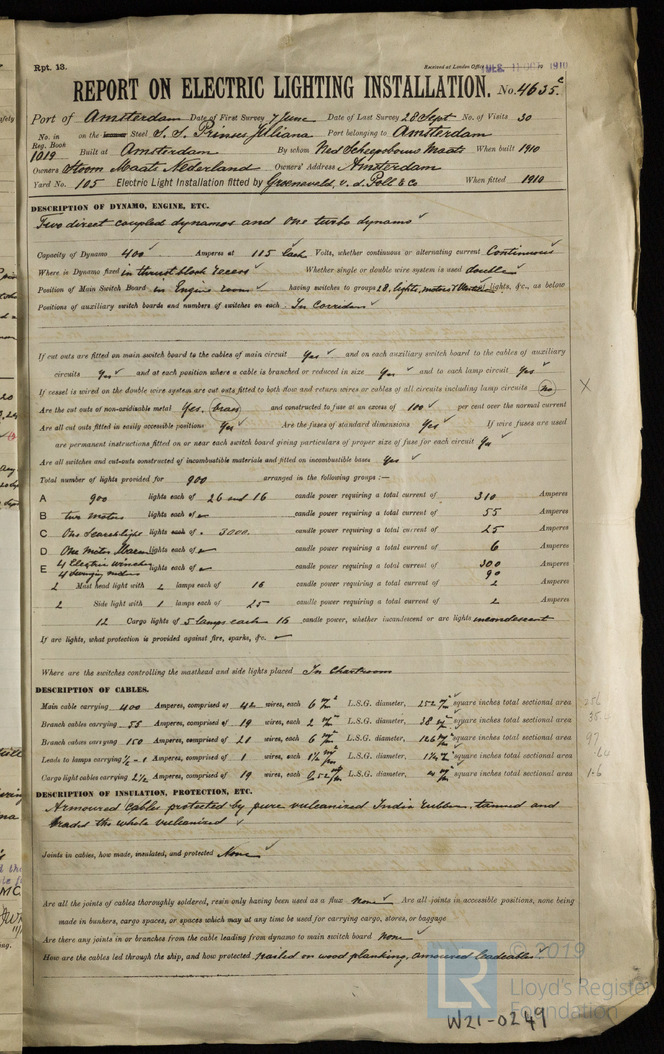 Rpt. 13.
Received at London Office
REPORT ON ELECTRIC LIGHTING INSTALLATION. No. 4635.c
Port of Amsterdam Date of First Survey 7 June Date of Last Survey 28 Sept No. of Visits 30
No. in Reg. Book 1019 on the Steel S.S. Prinses Juliana Port belonging to Amsterdam
Built at Amsterdam By whom Ned Scheepsbouw Maats When built 1910
Owners Stoom Maats Nederland Owners' Address Amsterdam
Yard No. 105 Electric Light Installation fitted by Groeneveld, v. d. Poll & Co When fitted 1910
DESCRIPTION OF DYNAMO, ENGINE, ETC.
Two direct coupled dynamos and One turbo dynamo
Capacity of Dynamo 400 Amperes at 115 Each Volts, whether continuous or alternating current Continuous
Where is Dynamo fixed in thrust block recess Whether single or double wire system is used double
Position of Main Switch Board in Engine room having switches to groups 28. lights, motors & lights, &c., as below
Positions of auxiliary switch boards and numbers of switches on each In Corridors
If cut outs are fitted on main switch board to the cables of main circuit Yes and on each auxiliary switch board to the cables of auxiliary
circuits Yes and at each position where a cable is branched or reduced in size Yes and to each lamp circuit Yes
If vessel is wired on the double wire system are cut outs fitted to both flow and return wires or cables of all circuits including lamp circuits No X
Are the cut outs of non-oxidisable metal Yes. brass and constructed to fuse at an excess of 100 per cent over the normal current
Are all cut outs fitted in easily accessible positions Yes Are the fuses of standard dimensions Yes If wire fuses are used
are permanent instructions fitted on or near each switch board giving particulars of proper size of fuse for each circuit Yes
Are all switches and cut-outs constructed of incombustible materials and fitted on incombustible bases Yes
Total number of lights provided for 900 arranged in the following groups :—
A 900 lights each of 26 and 16 candle power requiring a total current of 310 Amperes
B two motors lights each of candle power requiring a total current of 55 Amperes
C One Searchlight lights each of 3000. candle power requiring a total current of 25 Amperes
D One motor lights each of candle power requiring a total current of 6 Amperes
E 4 Electric winches lights each of candle power requiring a total current of 300 Amperes
4 motors 90
2 Mast head light with 2 lamps each of 16 candle power requiring a total current of 2 Amperes
2 Side light with 1 lamps each of 25 candle power requiring a total current of 2 Amperes
12 Cargo lights of 5 lamps each 16 candle power, whether incandescent or arc lights incandescent
If arc lights, what protection is provided against fire, sparks, &c.
Where are the switches controlling the masthead and side lights placed In Chartroom
DESCRIPTION OF CABLES.
Main cable carrying 400 Amperes, comprised of 42 wires, each 6 L.S.G. diameter, 252 square inches total sectional area
Branch cables carrying 55 Amperes, comprised of 19 wires, each 2 L.S.G. diameter, 38 square inches total sectional area
Branch cables carrying 150 Amperes, comprised of 21 wires, each 6 L.S.G. diameter, 126 square inches total sectional area
Leads to lamps carrying ½ - 1 Amperes, comprised of 1 wires, each 1½ L.S.G. diameter, 1½ square inches total sectional area
Cargo light cables carrying 2½ Amperes, comprised of 19 wires, each L.S.G. diameter, 4 square inches total sectional area
DESCRIPTION OF INSULATION, PROTECTION, ETC.
Armoured Cables protected by pure vulcanized India rubber, and
the whole vulcanized
Joints in cables, how made, insulated, and protected None
Are all the joints of cables thoroughly soldered, resin only having been used as a flux none Are all joints in accessible positions, none being
made in bunkers, cargo spaces, or spaces which may at any time be used for carrying cargo, stores, or baggage
Are there any joints in or branches from the cable leading from dynamo to main switch board None
How are the cables led through the ship, and how protected nailed on wood planking, armoured leadcables
© 2019
LR Lloyd's Register
Foundation
W21-0249